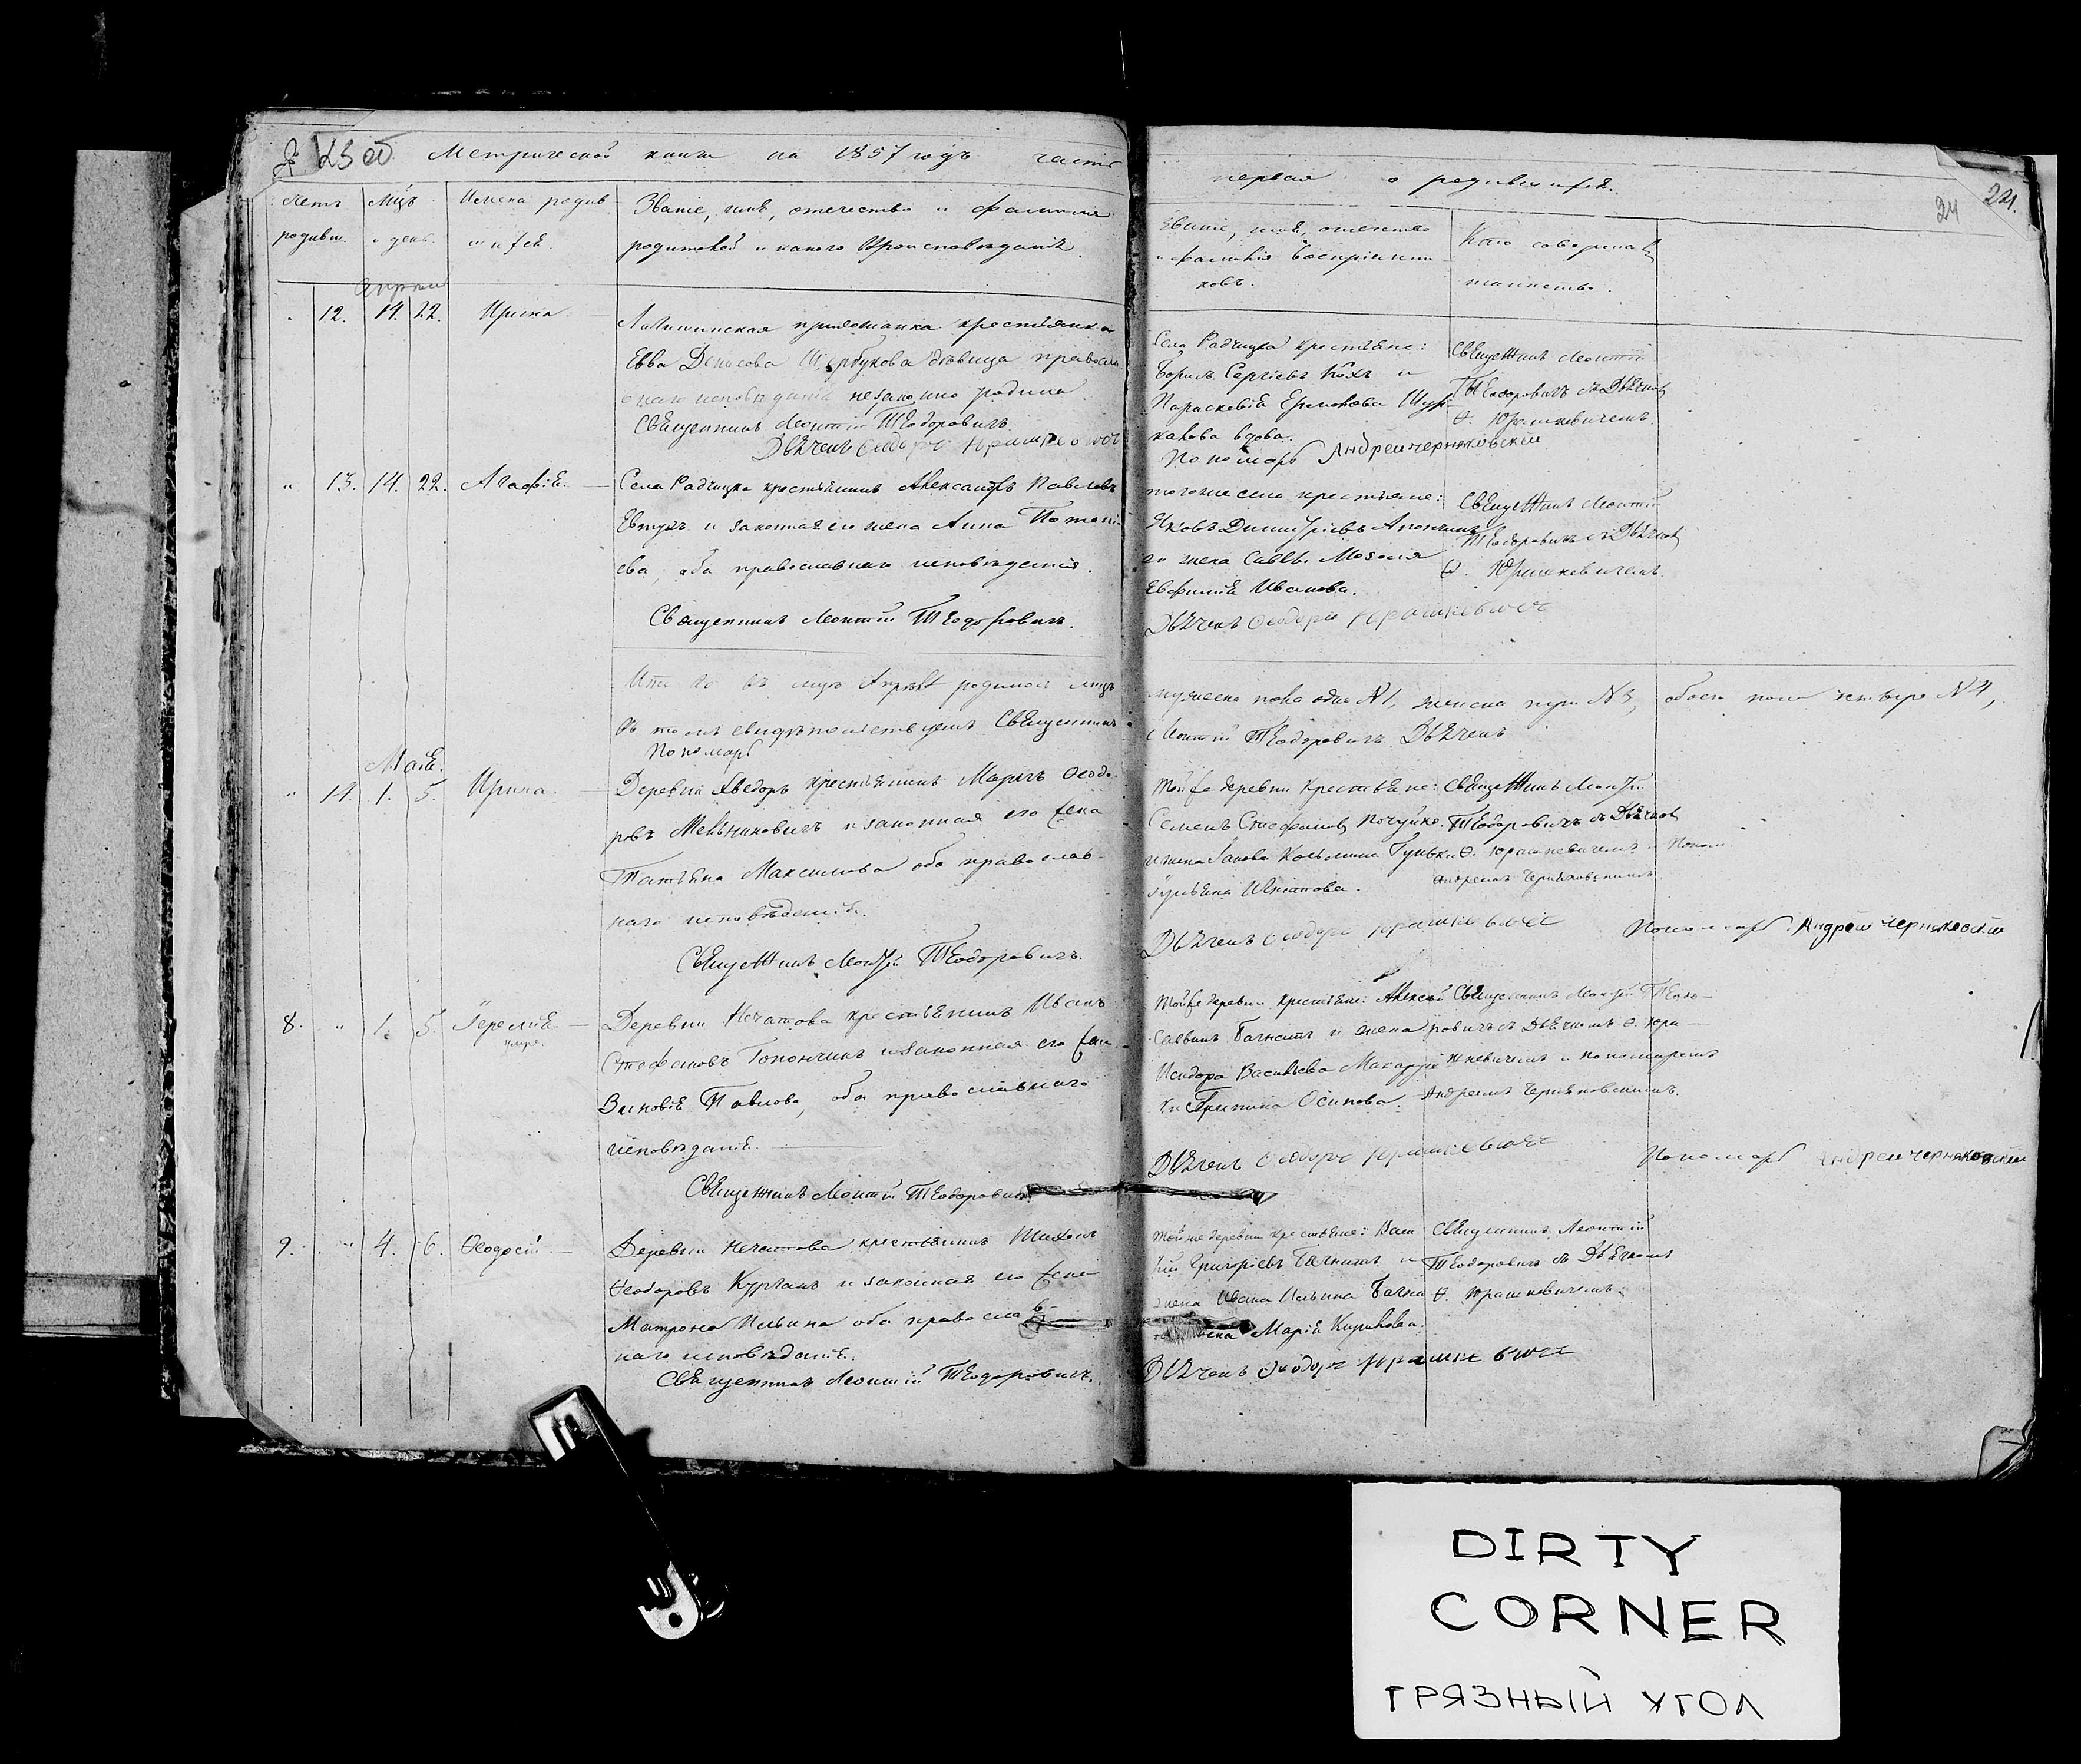 Метрической книги на 1857 годъ часть
первая о родившихся.
24
24.
Счетъ
родивш.
Мцъ
и день
Имена родив
шихся.
Званіе, имя, отечество и фамилія
родителей и какого вѣроисповѣданія
Званіе, имя, отчество
и фамилія воспріемни
ковъ.
Кто совершалъ
таинство.
Апрѣль
12. 14. 22. Ирина.
крестьянка
Евва Денисова дѣвица правосла
внаго исповѣданія незаконно родила
Священникъ Леонтій Теодоровичъ.
Дьячекъ Ѳеодоръ Юрашкевичъ
Села Радчицка крестьяне:
Борисъ Сергіевъ Кохъ и
Параскевія
вдова.
Пономарь Андрей Черняковскій
Священникъ Леонтій
Теодоровичъ съ Дьячкомъ
Ѳ. Юрашкевичемъ.
13. 14. 22. Агафія.
Села Радчицка крестьянинъ Александръ Павловъ
Евтухъ и законная его жена Анна
ева, оба православнаго исповѣданія.
Священникъ Леонтій Теодоровичъ.
тогоже села крестьяне:
Яковъ Димитріевъ
жена Саввы
Евфимія Иванова.
Дьячекъ Ѳеодоръ Юрашкевичъ
Священникъ Леонтій
Теодоровичъ съ Дьячкомъ
Ѳ. Юрашкевичемъ.
Итого въ мцѣ Апрѣлѣ родилось
мужеска пола одно №1, женска три №3, обоего пола четыре №4,
въ томъ свидѣтельствуемъ Священникъ
Леонтій Теодоровичъ Дьячекъ
Пономарь
Маія.
14. 1. 5. Ирина.
Деревни Хведоръ крестьянинъ Маркъ Ѳеодо
ровъ Мельниковичъ и законная его жена
Татьяна Максимова оба православ
наго исповѣданія.
Священникъ Леонтій Теодоровичъ.
Тойже деревни крестьяне:
Семенъ Стефановъ
Дьячекъ Ѳеодоръ Юрашкевичъ
Священникъ Леонтій
Теодоровичъ съ Дьячкомъ
Ѳ. Юрашкевичемъ и Поном
Андреемъ Черняковскимъ
Пономарь Андрей Черняковскій
8. 1. 5. Іеремія.
умре.
Деревни Нечатова крестьянинъ Иванъ
Стефановъ Топончикъ и законная его жена
Зиновія Павлова, оба православнаго
исповѣданія.
Священникъ Леонтій Теодоровичъ
Тойже деревни крестьяне: Алексей
Саввинъ Багнатъ и жена
Исидора Васильева
Осипова.
Дьячекъ Ѳеодоръ Юрашкевичъ
Священникъ Леонтій Теодо
ровичъ съ Дьячкомъ Ѳ. Юра
шкевичемъ и пономаремъ
Андреемъ Черняковскимъ.
Пономарь Андрей Черняковскій
9. 4. 6. Ѳеодосій.
Деревни Нечатова крестьянинъ Тихонъ
Ѳеодоровъ Курганъ и законная его жена
Матрона Ильина оба православ
наго исповѣданія.
Священникъ Леонтій Теодоровичъ.
Тойже деревни крестьяне:
Григоріевъ Багнатъ и
жена Ивана Ильина Багна
Марія Кирилова.
Дьячекъ Ѳеодоръ Юрашкевичъ
Священникъ Леонтій
Теодоровичъ съ Дьячкомъ
Ѳ. Юрашкевичемъ.
DIRTY
CORNER
ГРЯЗНЫЙ УГОЛ